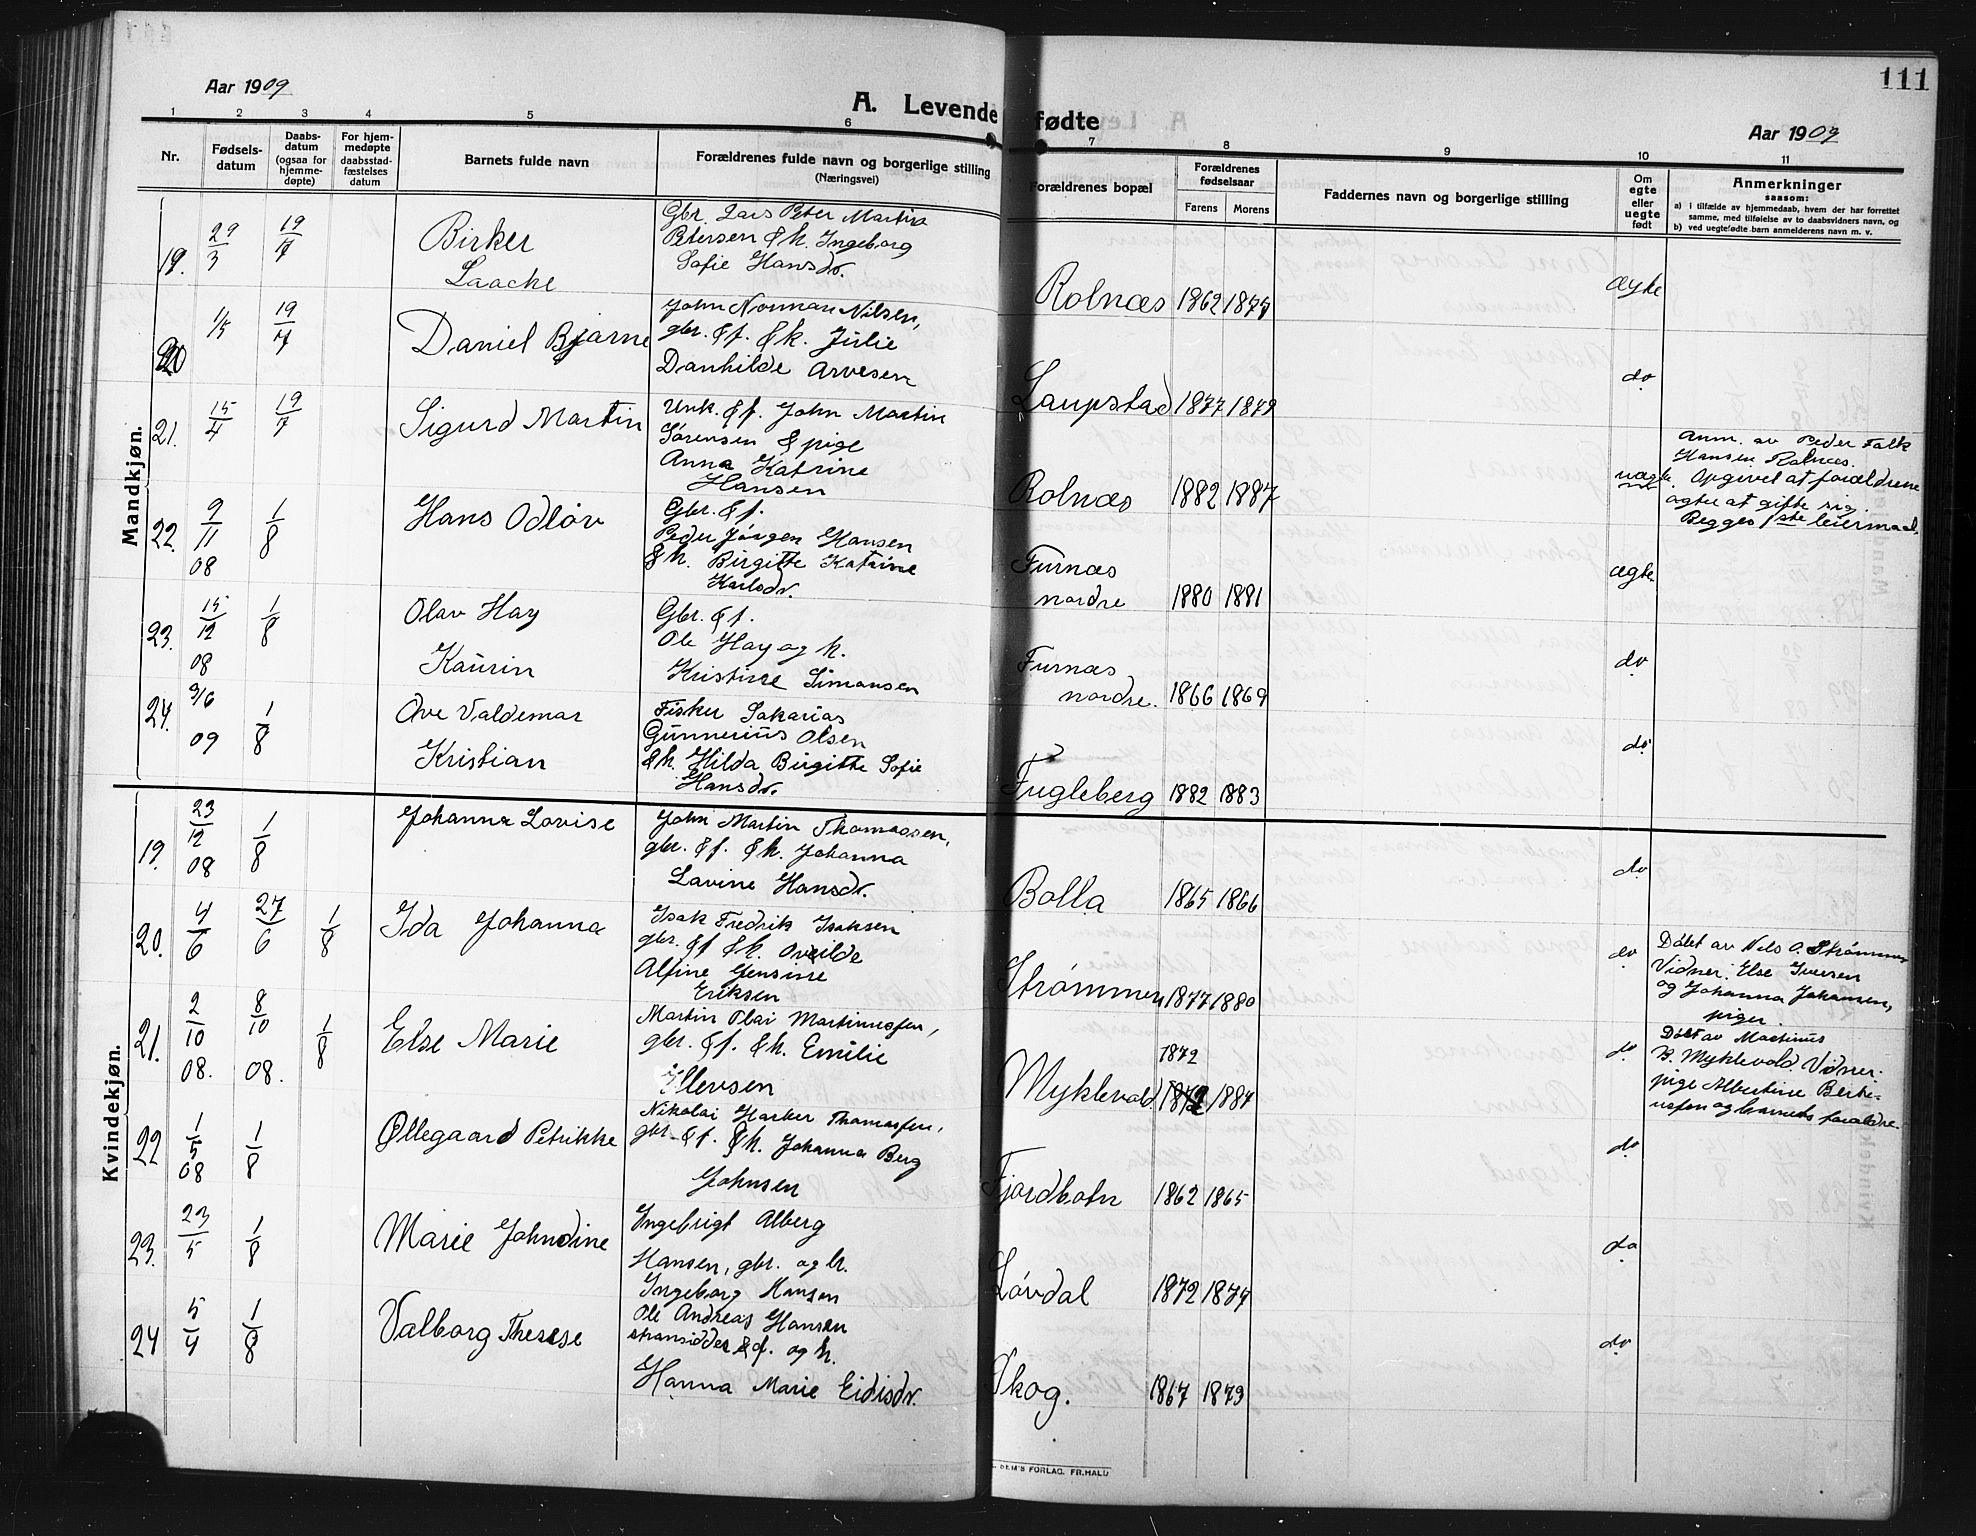 Aar 1909
A. Levende fødte
Aar 1909
111
1 2 3 4 5 6 7 8 9 10 11
Nr.
Fødsels-
datum
Daabs-
datum
(ogsaa for
hjemme-
døpte)
For hjem-
medøpte
daabsstad-
fæstelses
datum
Barnets fulde navn
Forældrenes fulde navn og borgerlige stilling
(Næringsvei)
Forældrenes bopæl
Forældrenes
fødselsaar
Farens Morens
Faddernes navn og borgerlige stilling
Om
egte
eller
uegte
født
Anmerkninger
saasom:
a) i tilfælde av hjemmedaab, hvem der har forrettet
samme, med tilføielse av to daabsvidners navn, og
b) ved uegtefødte barn anmelderens navn m. v.
Mandkjøn.
19. 29/3 19/7 Birker
Laache
Gbr. Lars Peter Martin
Petersen & h. Ingeborg
Sofie Hansdr.
Rolnæs 1862 1877 ægte
20 1/5 19/7 Daniel Bjarne
John Norman Nilsen,
gbr. & f. & h. Julie
Danhilde Arvesen
Laupstad 1877 1879 do
21. 15/4 19/7 Sigurd Martin
Unk. & f. John Martin
Sørensen & pige
Anna Katrine
Hansen
Rolnæs 1882 1887 uægte.
Anm. av Peder Falk
Hansen Rolnæs.
Opgivet at forældrene
agter at gifte sig.
Begges 1ste leiermaal.
22. 9/11 08 1/8 Hans Odlov
Gbr. & f.
Peder Jørgen Hansen
& h. Birgitte Katrine
Karlsdr.
Furnæs
nordre 1880 1881 ægte.
23. 15/12 08 1/8 Olav Hay
Kaurin
Gbr. & f.
Ole Hay og h.
Kristine Simonsen
Furnæs
nordre. 1866 1869 do
24. 9/6 09 1/8 Ove Valdemar
Kristian
Fisker Sakarias
Gunnerius Olsen
& h. Hilda Birgitte Sofie
Hansdr.
Fugleberg 1882 1883 do
Kvindekjøn.
19. 23/12 08 1/8 Johanna Lovise
John Martin Thomassen,
gbr. & f. & h. Johanna
Lavine Hansdr.
Bolla 1865 1866 do
20. 4/6 27/6 1/8 Ida Johanna
Isak Fredrik Isaksen
gbr. & f & h. Ovilde
Alfine Jensine
Eriksen
Strømmen 1877 1880 do
Døbt av Nils A. Strømmen
Vidner: Else Iversen
og Johanna Johansen,
piger.
21. 2/10 08. 8/10 08. 1/8 Else Marie
Martin Olai Martinussen,
gbr. & f. & h. Emilie
Ellevsen
Myklevold. 1872 1884 do
Døbt av Martinus
B. Myklevold. Vidner:
pige Albertine Berte-
ussen og barnets forældre.
22 1/5 08 1/8 Øllegaard Petrikke
Nikolai Harker Thomassen,
gbr. & f. & h. Johanna Berg
Johnsen
Fjordbotn 1862 1865 do
23. 23/5 1/8 Marie Johndine
Ingebrigt Alberg
Hansen, gbr. og h.
Ingeborg Hansen
Løvdal 1872 1874 do
24 5/4 1/8 Valborg Therese
Ole Andreas Hansen
strandsidder & f. og h.
Hanna Marie Eidisdr.
Skog. 1867 1879 do
DEM'S FORLAG. FR.HALD